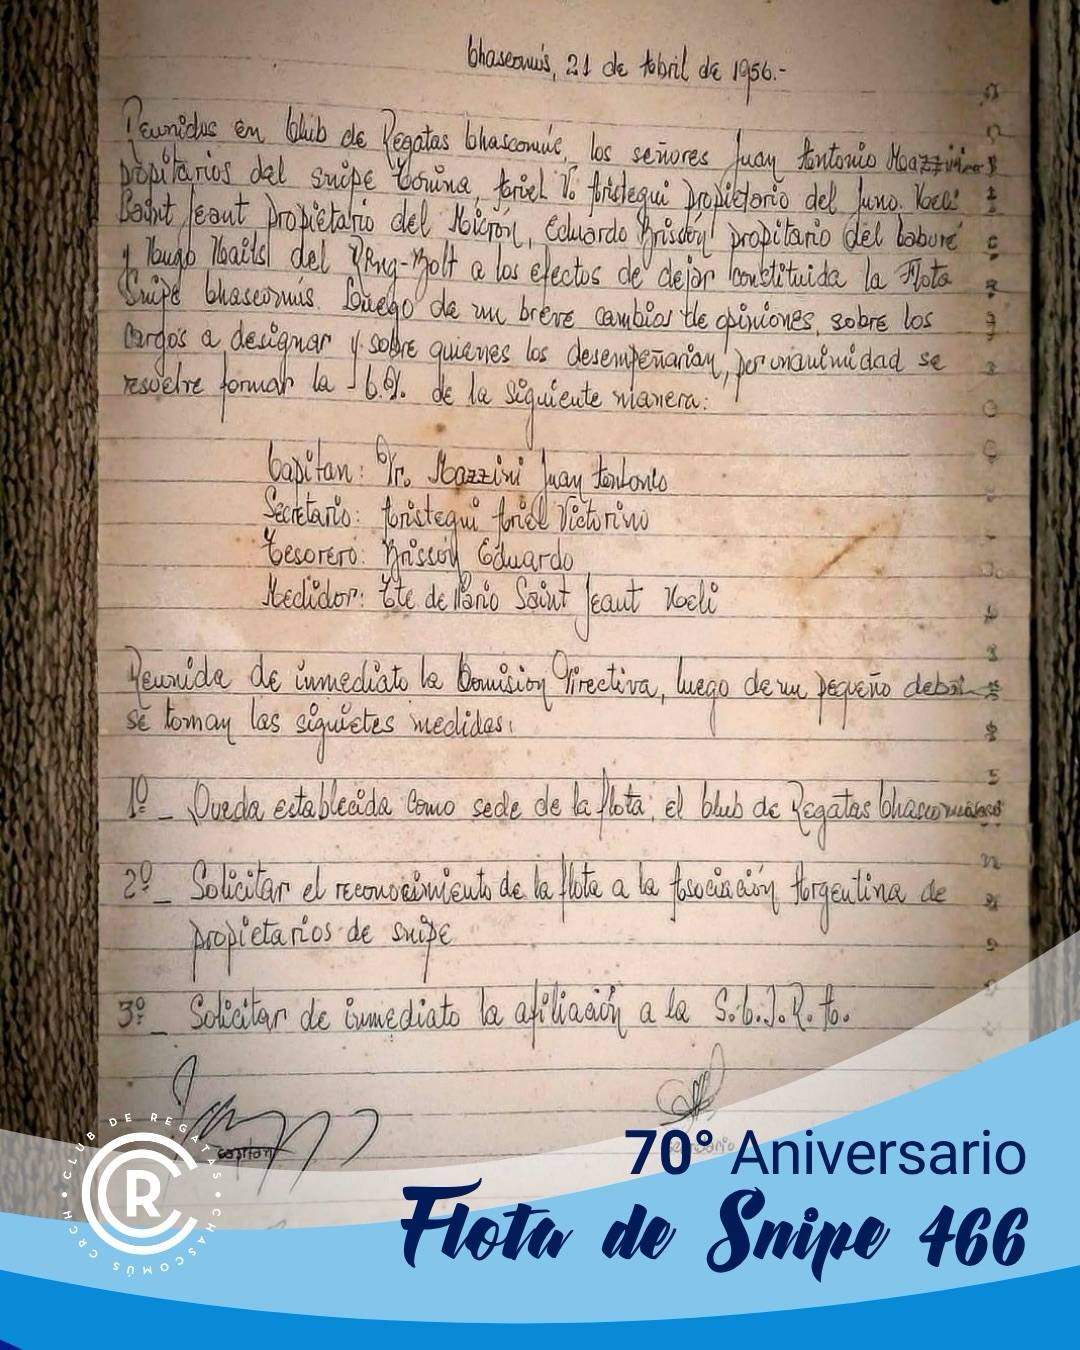 Chascomús, 21 de Abril de 1956.-
Reunidos en Club de Regatas Chascomús, los señores Juan Antonio Mazzini
propitarios del snipe Corina, Ariel V. Aristegui propietario del Juno. Noeli
Saint Jeaut propietario del Alción, Eduardo Brissón propitario del Caburé
y Hugo del a los efectos de dejar constituida la Flota
Snipe Chascomús. Luego de un breve cambios de opiniones, sobre los
cargos a designar y sobre quienes los desempeñarian, por unanuimidad se
resuelve formar la C.D. de la siguiente manera:
Capitan: Dr. Mazzini Juan Antonio
Secretario: Aristegui Ariel Victorino
Tesorero: Brissón Eduardo
Medidor: Tte de Navio Saint Jeaut Noeli
Reunida de inmediato la Comision Directiva, luego de un pequeño debate
se toman las siguietes medidas:
1º_ Queda establecida como sede de la flota, el Club de Regatas Chascomús
2º_ Solicitar el reconocimiento de la flota a la Asociación Argentina de
propietarios de snipe
3º_ Solicitar de inmediato la afiliación a la S.C.I.R.A.
capitan
secretario
CLUB DE REGATAS CHASCOMÚS CRCH
CR
70° Aniversario
Flota de Snipe 466